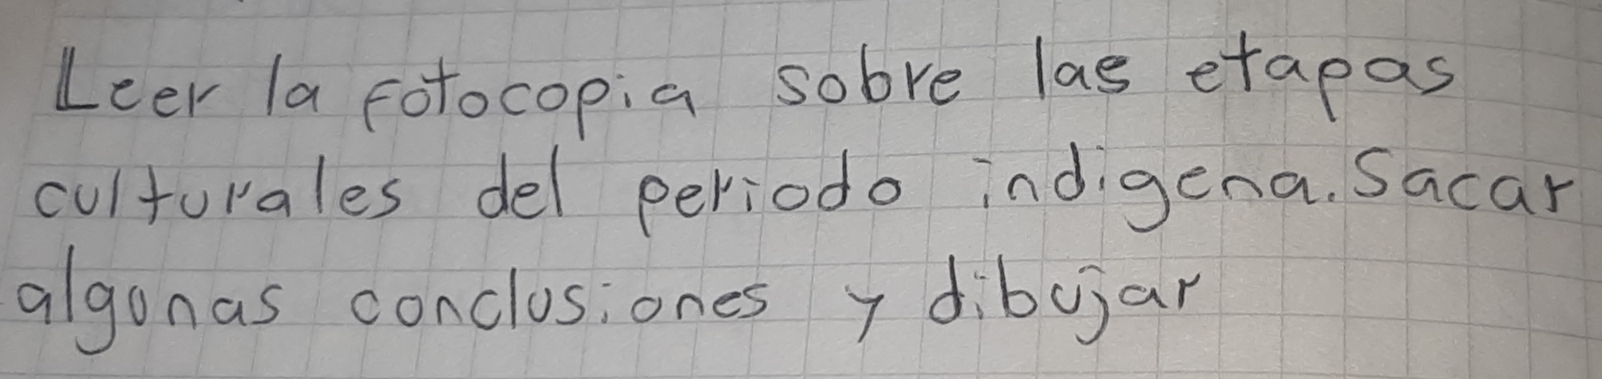 Leer la fotocopia sobre las etapas
culturales del periodo indigena. Sacar
algunas conclusiones y dibujar